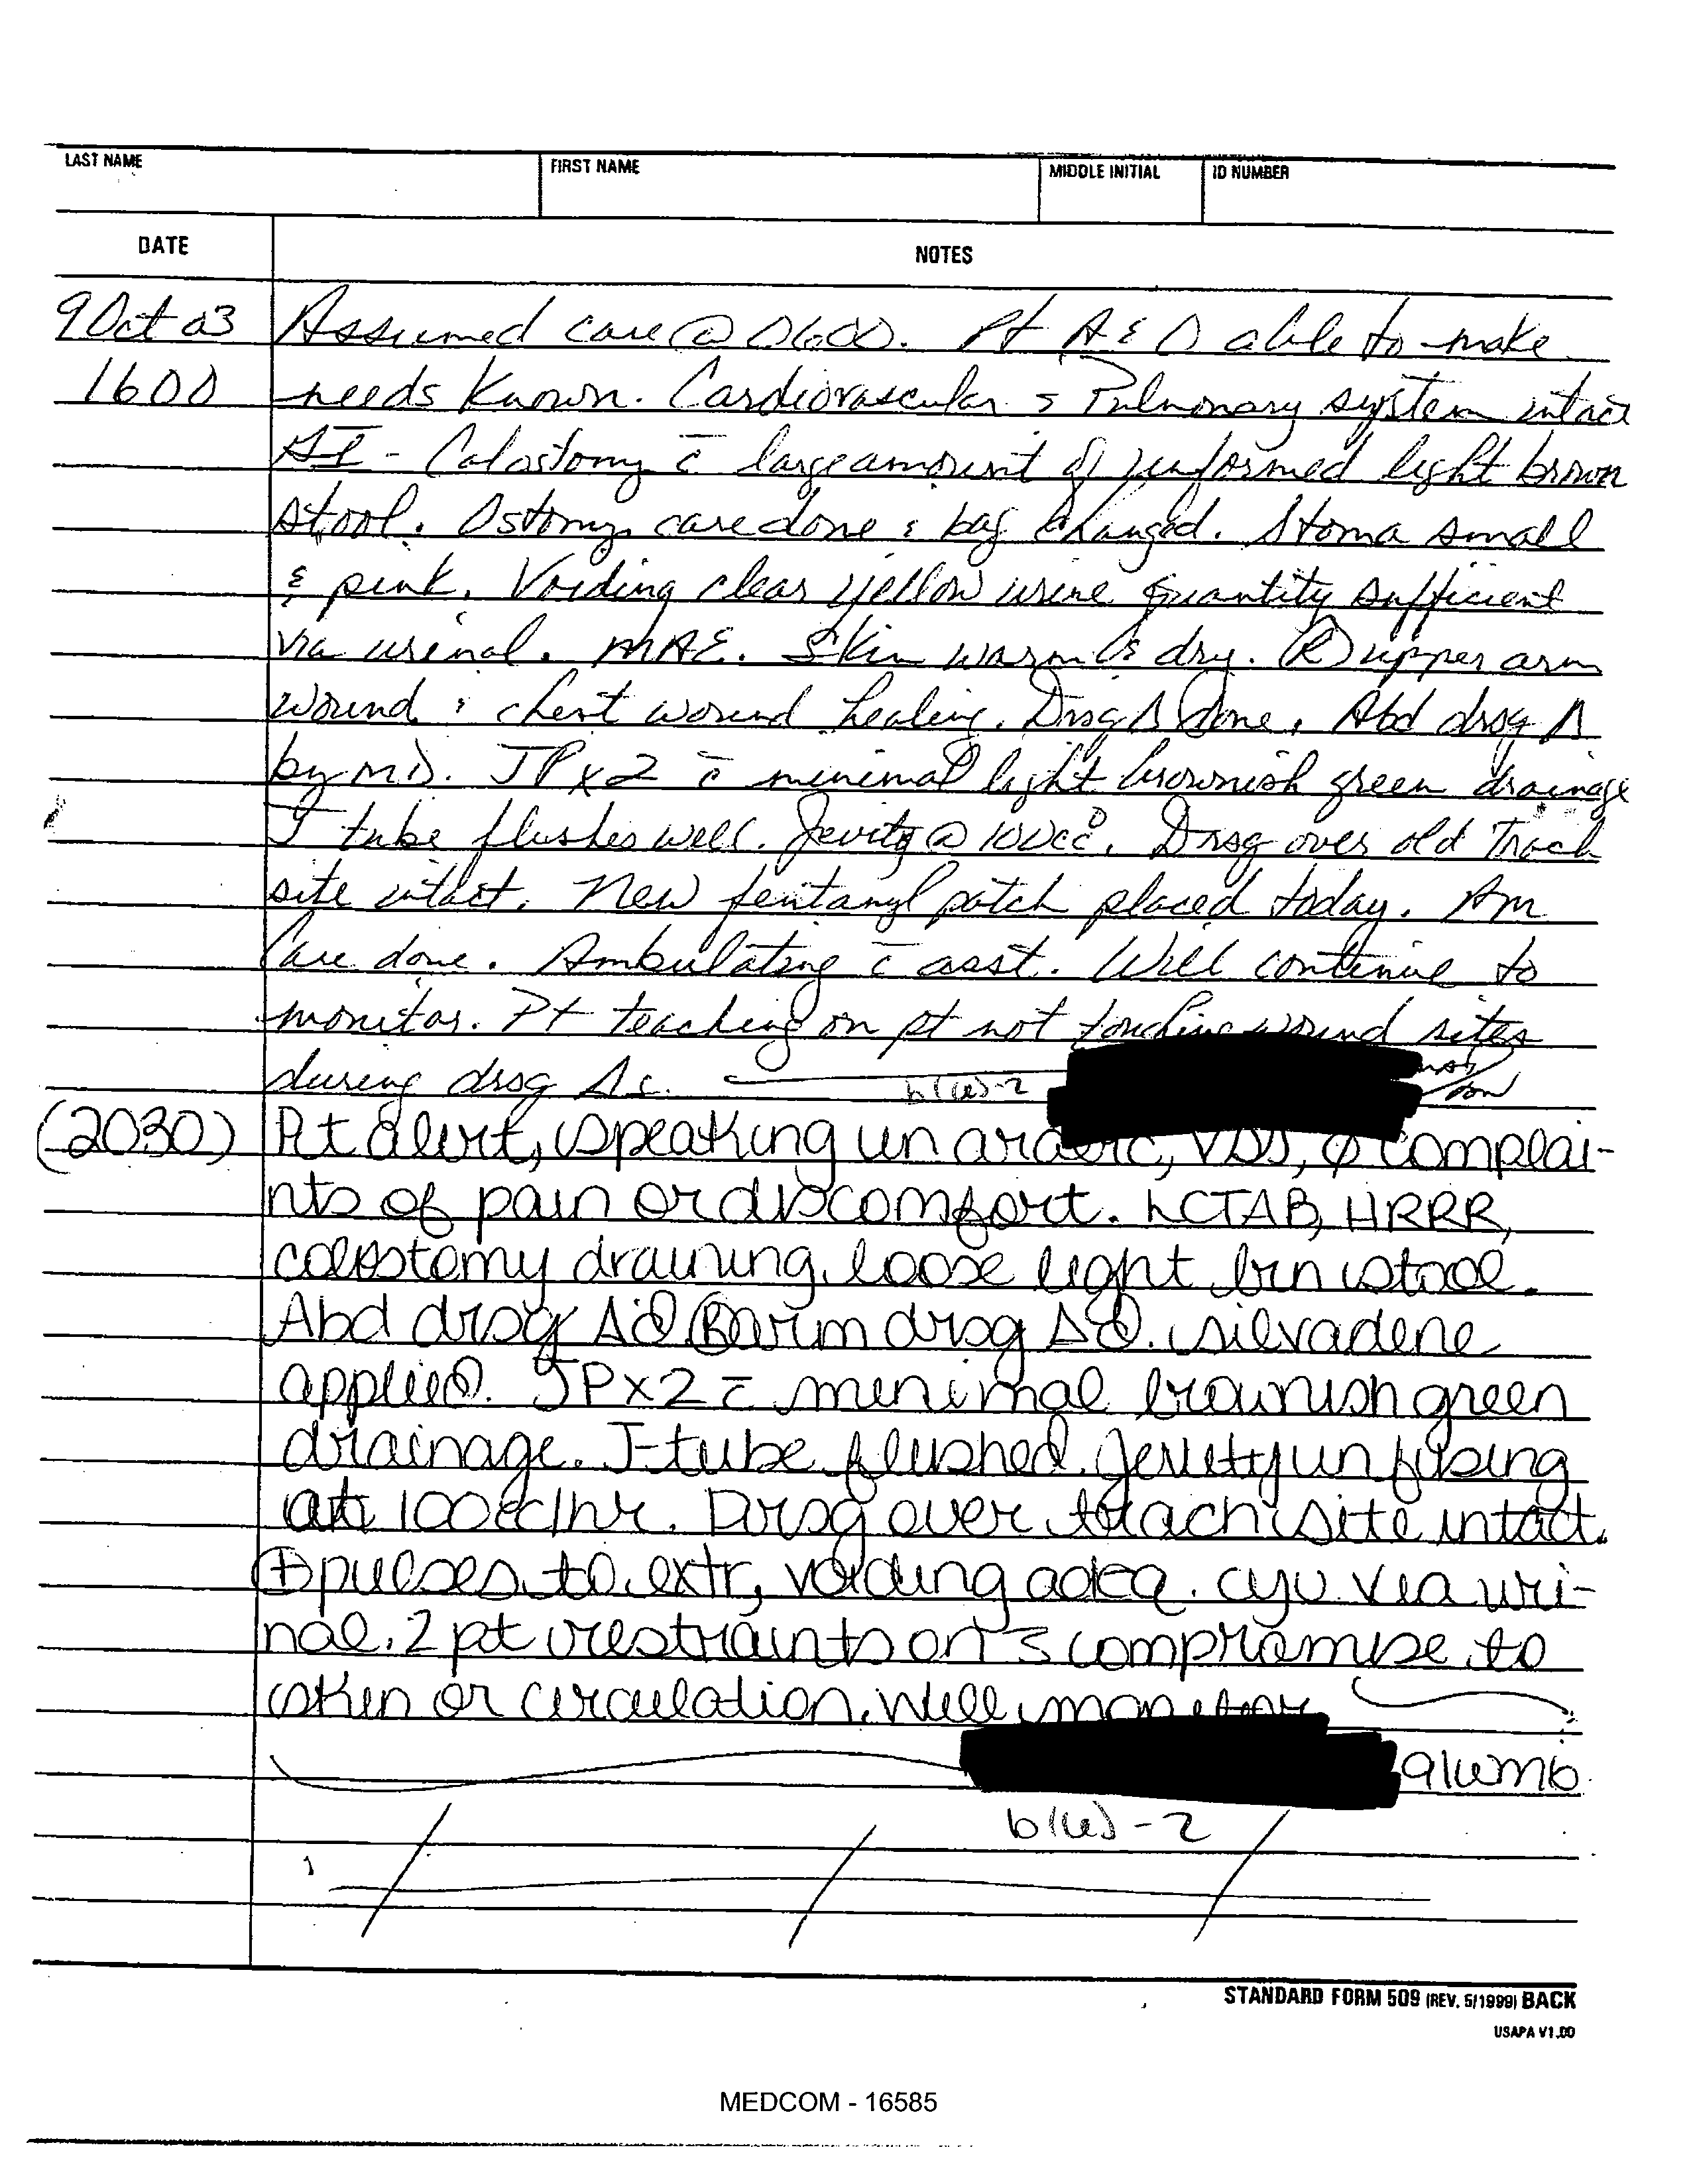 LAST NAME FIRST NAME MIDDLE INITIAL ID NUMBER
DATE NOTES
9 Oct 03 Assumed care @ 0600. Pt A & O able to make
1600 needs known. Cardiovascular & Pulmonary system intact
GI - Colostomy c̄ large amount of unformed light brown
stool. Ostomy care done & bag changed. Stoma small
& pink. Voiding clear yellow urine quantity sufficient
via urinal. MAE. Skin warm & dry. Ⓡ upper arm
wound & chest wound healing. Drsg Δ done. Abd drsg Δ
by MD. JP x 2 c̄ minimal light brownish green drainage
J tube flushes well. Jevity @ 100cc°. Drsg over old Trach
site intact. New fentanyl patch placed today. Am
Care done. Ambulating c̄ asst. Will continue to
monitor. Pt teaching on pt not touching wound sites
during drsg Δs. b(6)-2
(2030) Pt alert, speaking in arabic, VSS, ∅ complai-
nts of pain or discomfort. LCTAB, HRRR,
colostomy draining loose light brn stool.
Abd drsg Δ'd Ⓡ arm drsg Δ'd. silvadene
applied. JP x 2 c̄ minimal brownish green
drainage. J-tube flushed. Jevity infusing
at 100cc/hr. Drsg over trach site intact.
⊕ pulses to extr, voiding adeq. cyu via uri-
nal. 2 pt restraints on s̄ compromise to
skin or circulation. Will monitor
91WM6
b(6)-2
STANDARD FORM 509 (REV. 5/1999) BACK
USAPA V1.00
MEDCOM - 16585